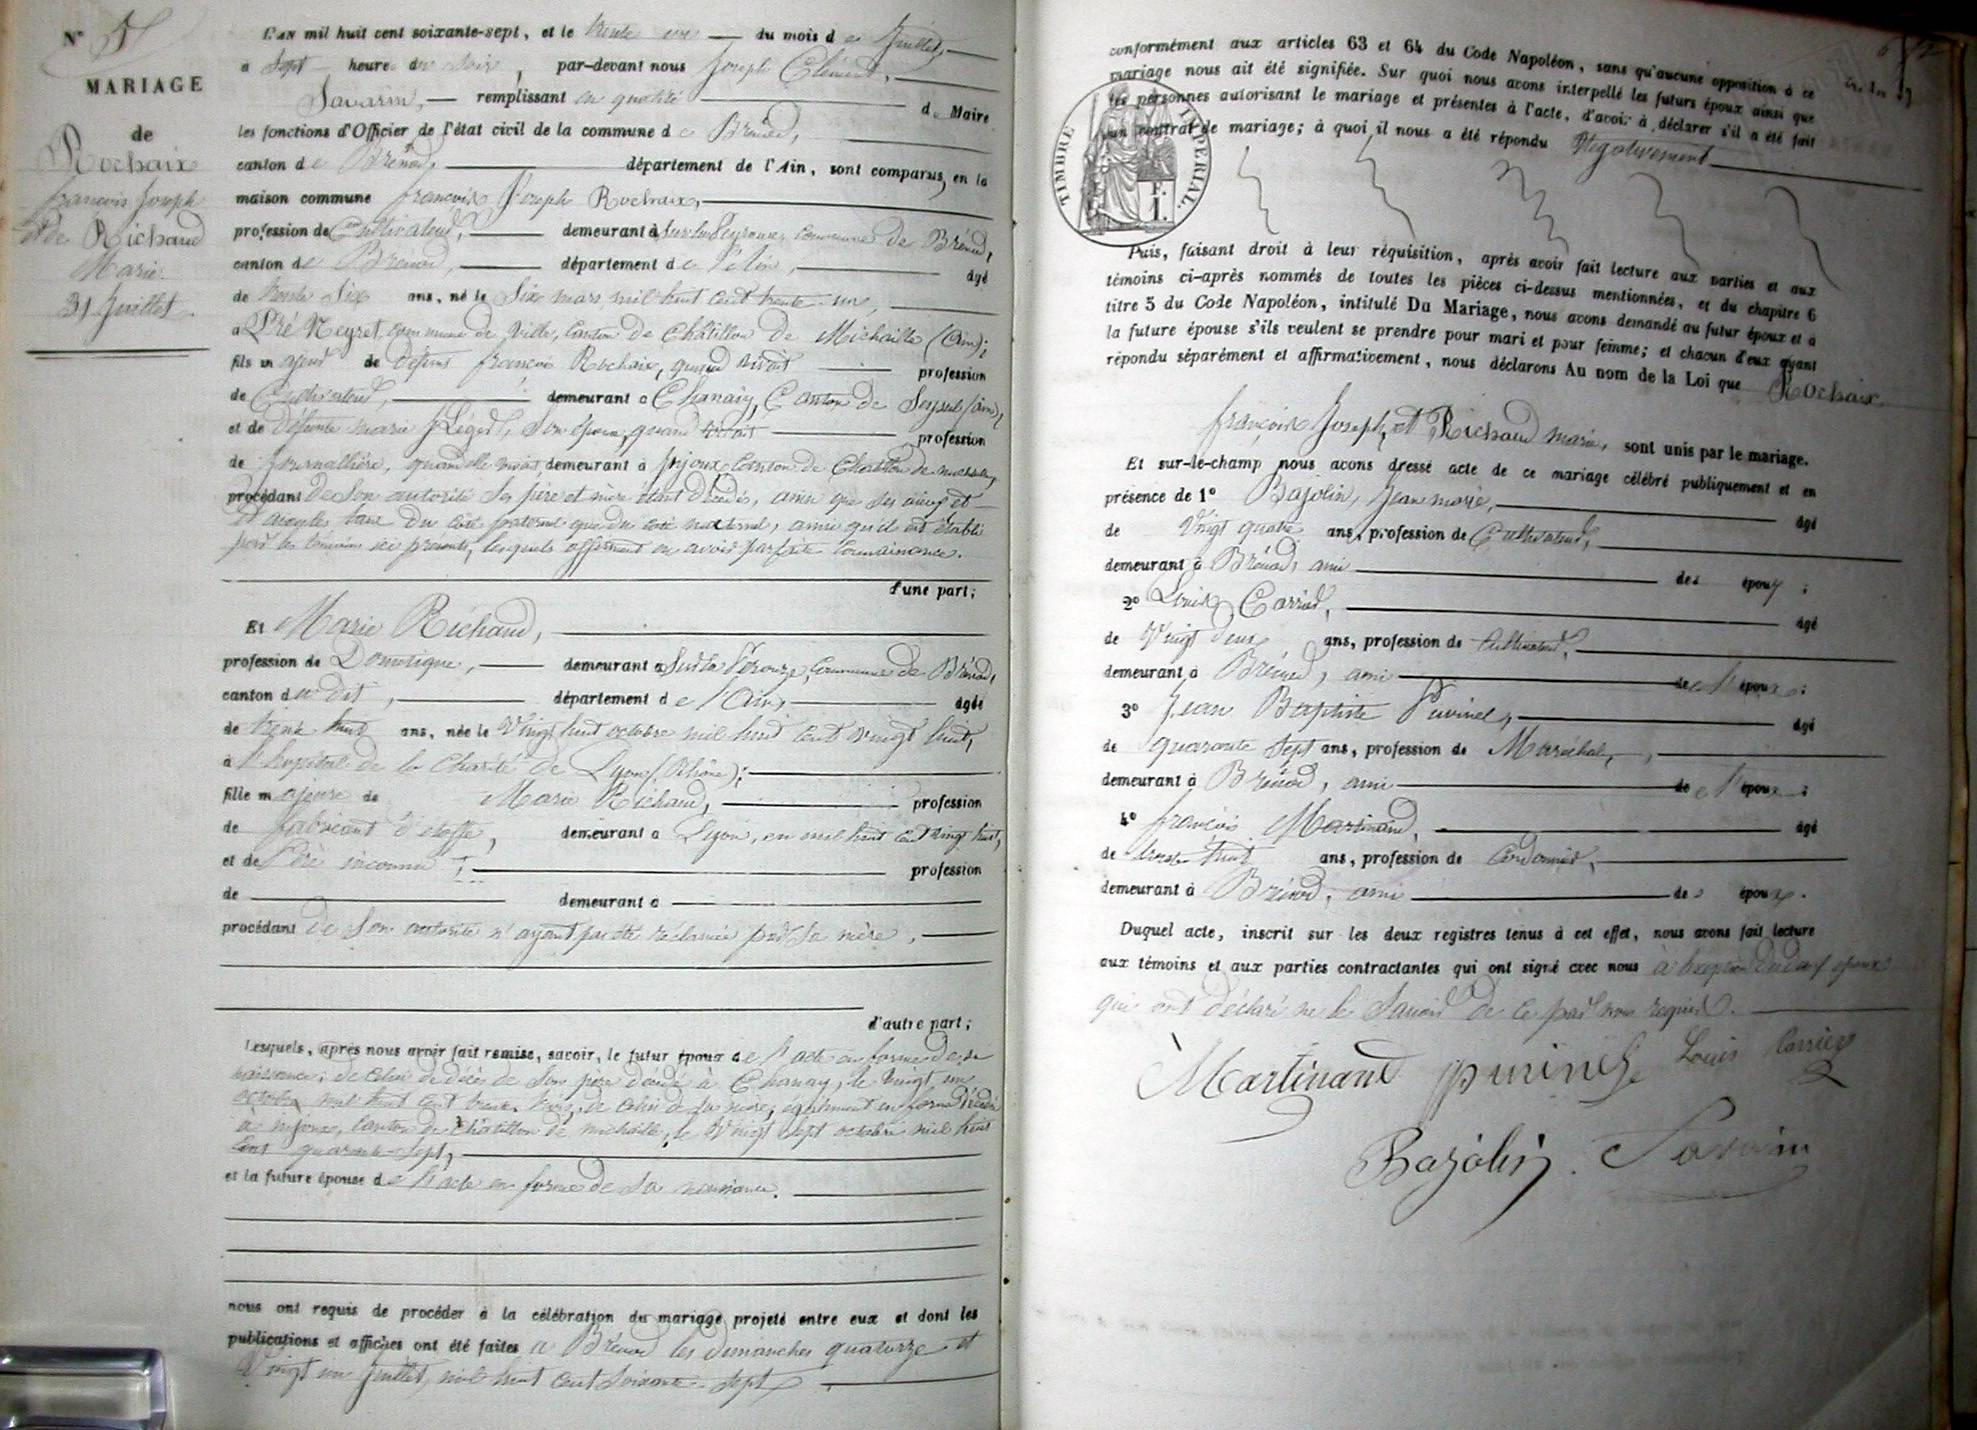 N° 5
MARIAGE
de
Rochaix
françois Joseph
et de Richaud
Marie
31 Juillet.
L'AN mil huit cent soixante-sept, et le trente un du mois de Juillet,
à Sept heures du Soir, par-devant nous Joseph Clément,
Savarin, remplissant en qualité de Maire
les fonctions d'Officier de l'état civil de la commune de Brénod,
canton de Brénod, département de l'Ain, sont comparus, en la
maison commune françois Joseph Rochaix,
profession de Cultivateur, demeurant à sur la commune de Brénod,
canton de Brénod, département de l'Ain, âgé
de trente Six ans, né le Six mars mil huit cent trente-un,
à Pré Neyret, commune de Ville, Canton de Châtillon de Michaille (Ain);
fils majeur de défunt françois Rochaix, quand vivait profession
de Cultivateur, demeurant à Chanay, Canton de Seyssel (ain),
et de Défunte marie Son épouse, quand vivait profession
de Journallière, quand elle vivait demeurant à Injoux, Canton de Chatillon de michaille,
procédant de Son autorité Ses père et mère étant Décédés, ainsi que Ses aïeuls et
et ayeules tant du côté paternel que du coté maternel, ainsi qu'il est établi
par les témoins ici présents, lesquels affirment en avoir parfaite Connaissance.
d'une part;
Et Marie Richaud,
profession de Domestique, demeurant à Sur la Commune de Brénod,
canton du dit, département de l'Ain, âgée
de trente huit ans, née le Vingt huit octobre mil huit cent vingt huit,
à l'hopital de la Charité de Lyon (Rhône);
fille majeure de Marie Richaud, profession
de fabricant d'étoffe, demeurant à Lyon, en mil huit cent vingt huit,
et de Père inconnu, profession
de demeurant à
procédant de Son autorité n'ayant pas été réclamée par Sa mère,
d'autre part;
Lesquels, après nous avoir fait remise, savoir, le futur époux de l'acte en forme de sa
naissance; de Celui de décès de Son père décédé à Chanay, le Vingt un
octobre mil huit cent trente trois, de celui de Sa mère, également en forme décédée
à injoux, Canton de Châtillon de michaille, le Vingt Sept octobre mil huit
Cent quarante-Sept,
et la future épouse de l'acte en forme de Sa naissance.
nous ont requis de procéder à la célébration du mariage projeté entre eux et dont les
publications et affiches ont été faites à Brénod les dimanches quatorze et
Vingt un Juillet, mil huit Cent Soixante-Sept,
conformément aux articles 63 et 64 du Code Napoléon, sans qu'aucune opposition à ce
mariage nous ait été signifiée. Sur quoi nous avons interpellé les futurs époux ainsi que
les personnes autorisant le mariage et présentes à l'acte, d'avoir à déclarer s'il a été fait
un contrat de mariage; à quoi il nous a été répondu Négativement
TIMBRE IMPÉRIAL.
Puis, faisant droit à leur réquisition, après avoir fait lecture aux parties et aux
témoins ci-après nommés de toutes les pièces ci-dessus mentionnées, et du chapitre 6
titre 5 du Code Napoléon, intitulé Du Mariage, nous avons demandé au futur époux et à
la future épouse s'ils veulent se prendre pour mari et pour femme; et chacun d'eux ayant
répondu séparément et affirmativement, nous déclarons Au nom de la Loi que Rochaix
françois Joseph, et Richaud marie, sont unis par le mariage.
Et sur-le-champ nous avons dressé acte de ce mariage célébré publiquement et en
présence de 1° Bajolin, Jean marie, âgé
de Vingt quatre ans, profession de Cultivateur,
demeurant à Brénod, ami des époux;
2° Louis Carrier, âgé
de Vingt deux ans, profession de Cultivateur,
demeurant à Brénod, ami de l'époux;
3° Jean Baptiste Puvinel, âgé
de quarante Sept ans, profession de Maréchal,
demeurant à Brénod, ami de l'époux;
4° françois Martinand, âgé
de trente huit ans, profession de Cordonnier,
demeurant à Brénod, ami des époux.
Duquel acte, inscrit sur les deux registres tenus à cet effet, nous avons fait lecture
aux témoins et aux parties contractantes qui ont signé avec nous à l'exception époux
qui ont déclaré ne le Savoir de ce par nous requis.
Martinand Louis Carrier
Bajolin. Savarin